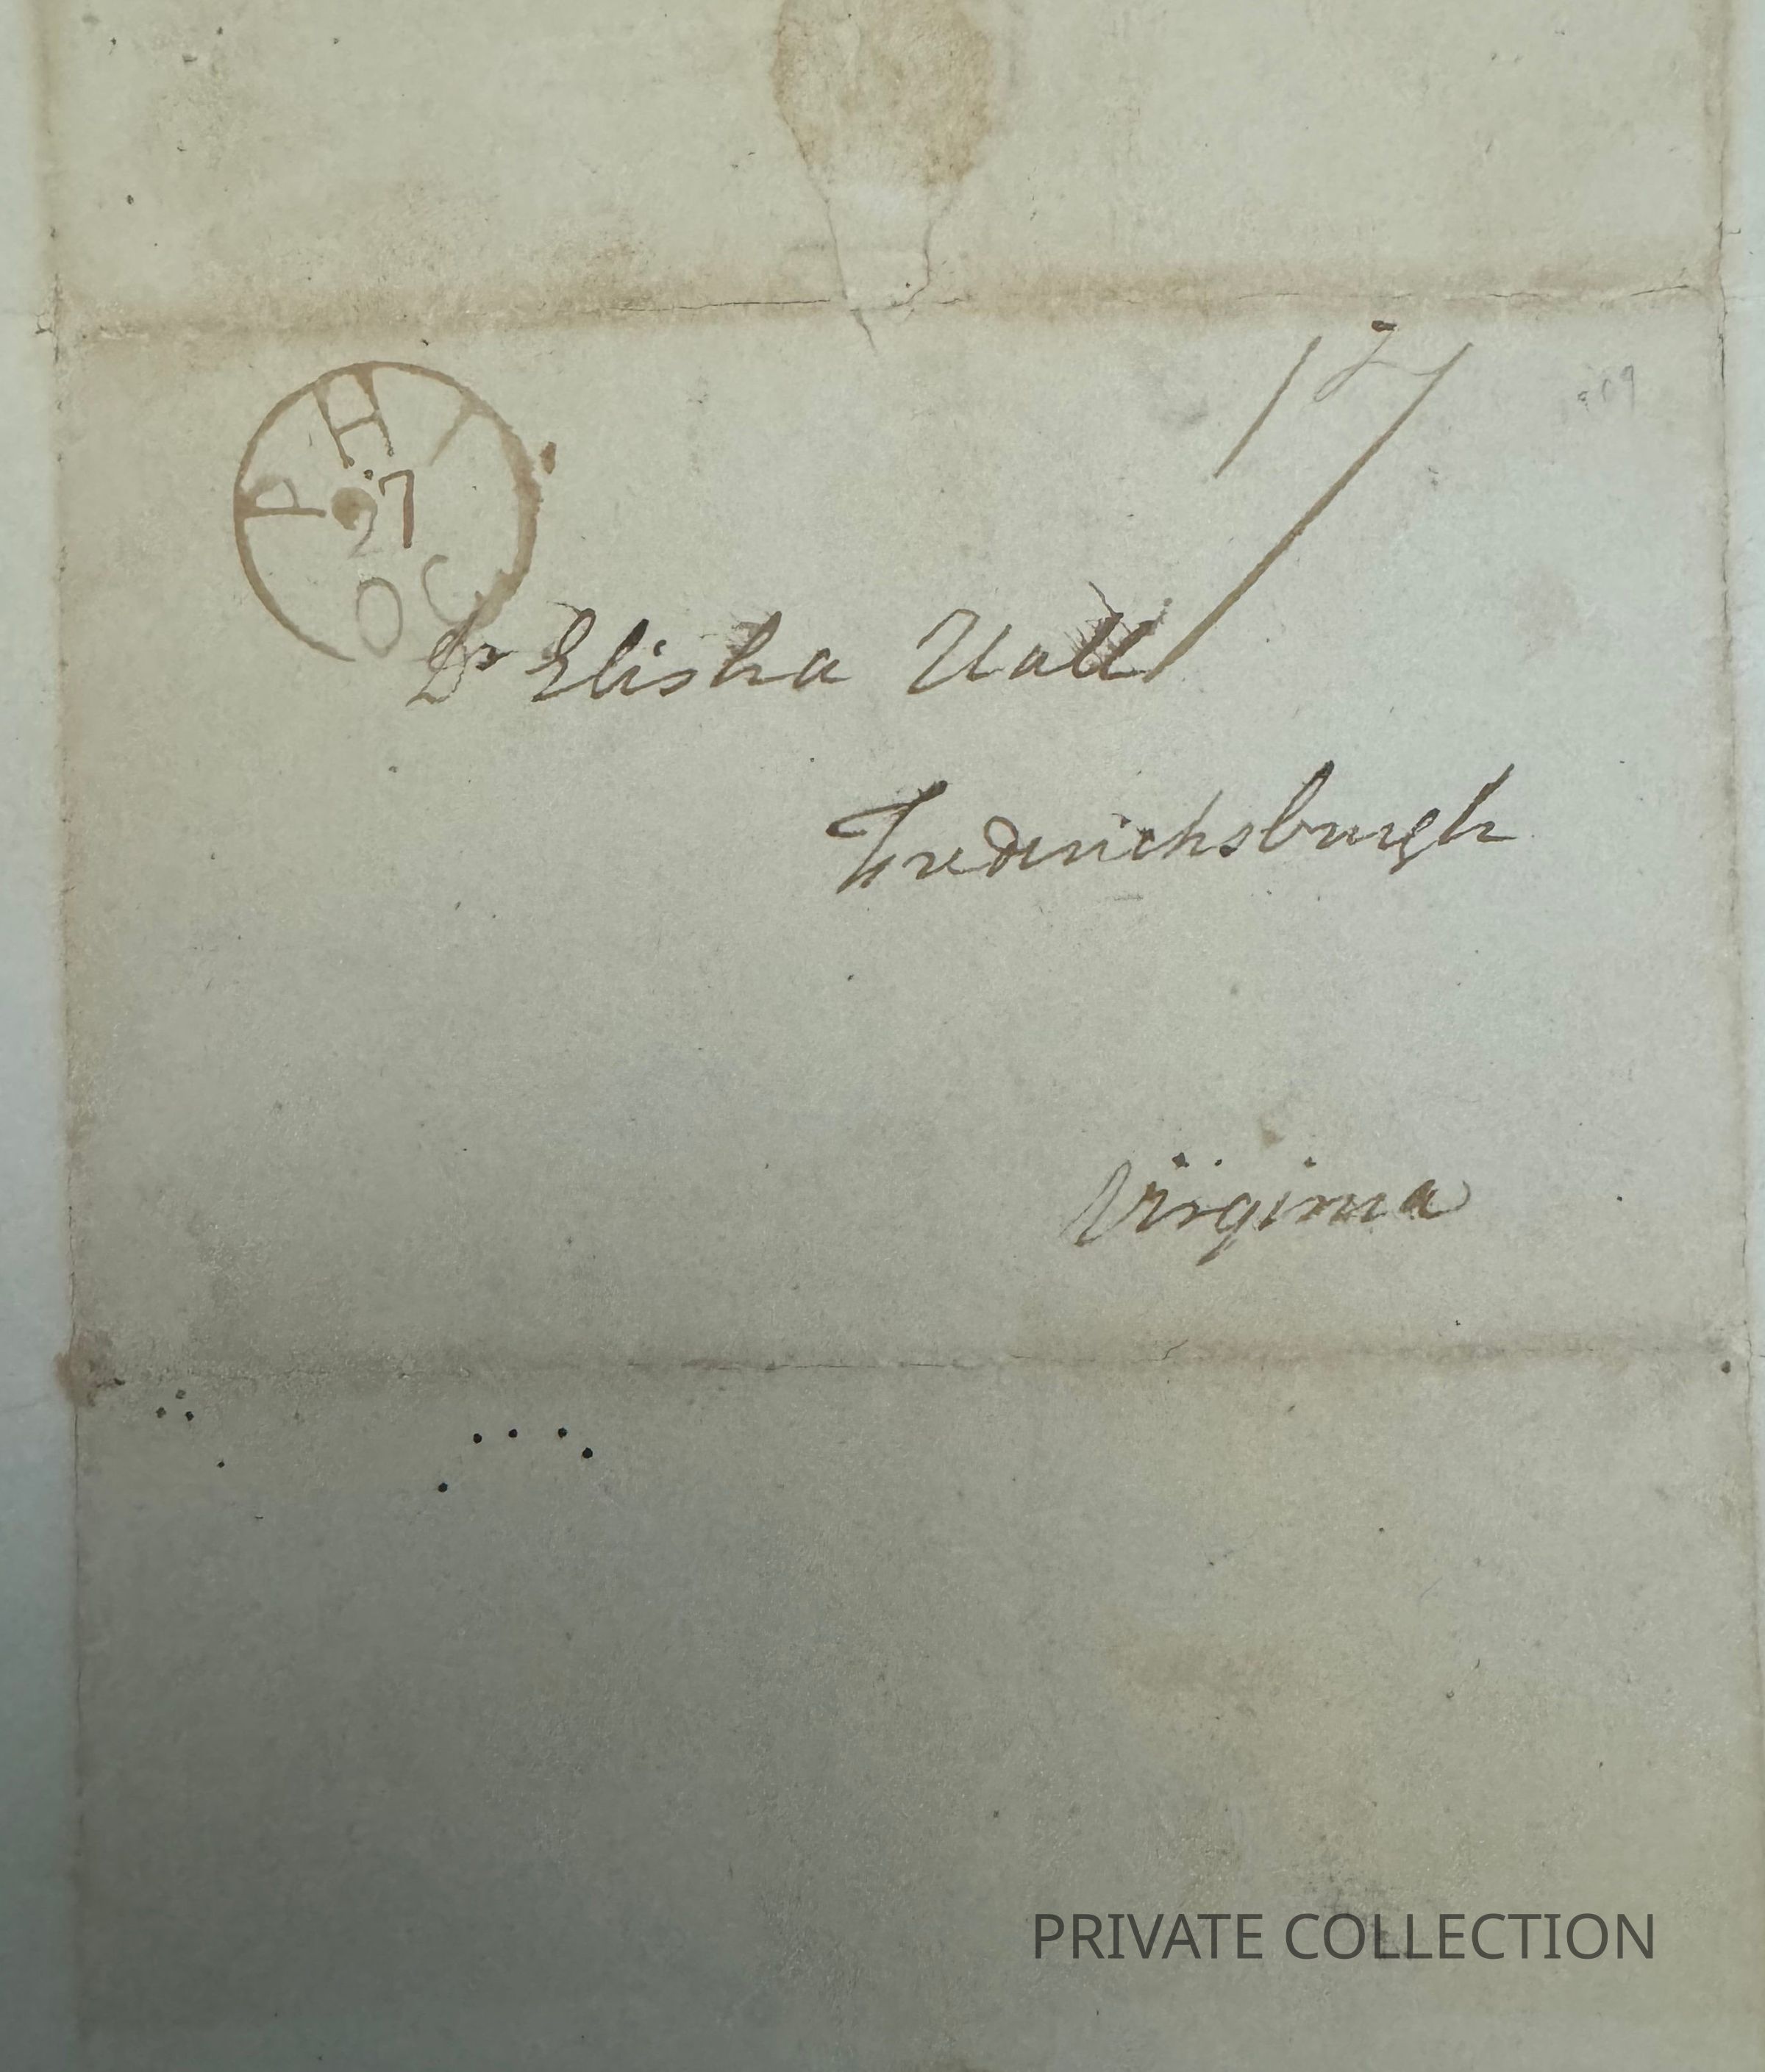 PHI
27
OC
17
Dr Elisha Hall
Frederichsburgh
Virginia
PRIVATE COLLECTION